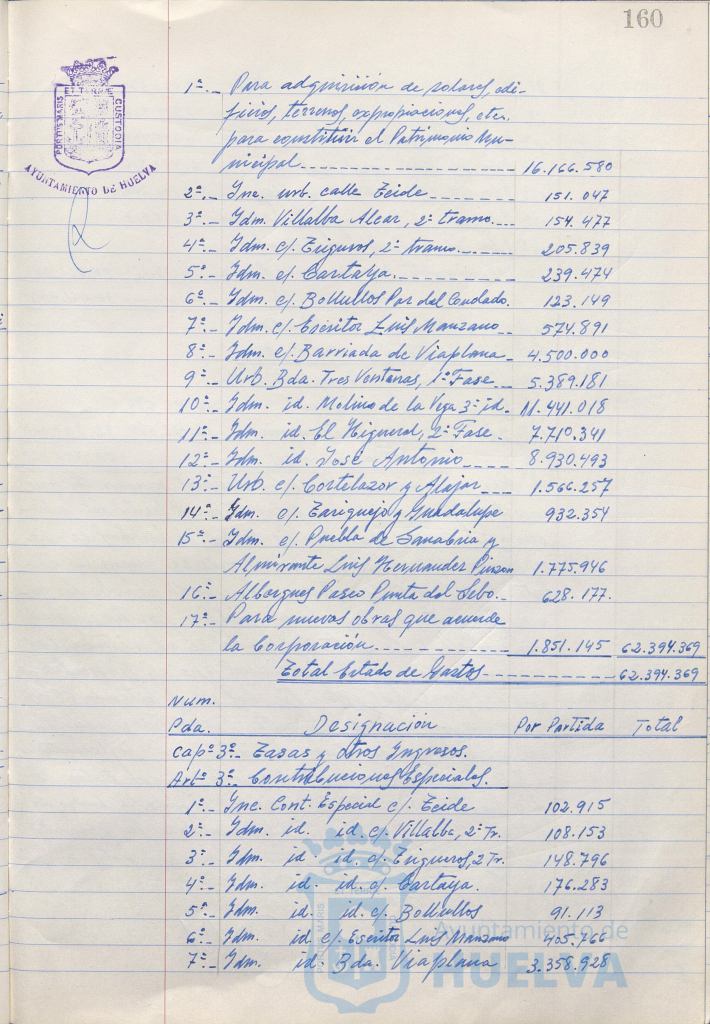 160
PORTUS MARIS ET TERRAE CUSTODIA
AYUNTAMIENTO DE HUELVA
1ª.- Para adquisición de solares, edi-
ficios, terrenos, expropiaciones, etc.
para constituir el Patrimonio Mu-
nicipal 16.166.580
2ª.- Inc. urb. calle Teide 151.047
3ª.- Idm. Villalba Alcor, 2º tramo 154.477
4ª.- Idm. c/. Trigueros, 2º tramo 205.839
5ª.- Idm. c/. Cartaya. 239.474
6ª.- Idm. c/. Bollullos Par del Condado. 123.149
7ª.- Idm. c/. Escritor Luis Manzano 574.891
8ª.- Idm. c/. Barriada de Viaplana 4.500.000
9ª.- Urb. Bda. Tres Ventanas, 1ª Fase 5.389.181
10ª.- Idm. id. Molino de la Vega 3ª id. 11.441.018
11ª.- Idm. id. El Higueral, 2ª Fase. 7.710.341
12ª.- Idm. id. José Antonio 8.930.493
13ª.- Urb. c/. Cortelazor y Alajar 1.566.257
14ª.- Idm. c/. Zariquejo y Guadalupe 932.354
15ª.- Idm. c/. Puebla de Sanabria y
Almirante Luis Hernandez Pinzon 1.775.946
16ª.- Albergues Paseo Punta del Sebo. 628.177.
17ª.- Para nuevas obras que acuerde
la Corporación 1.851.145 62.394.369
Total Estado de Gastos 62.394.369
Num.
Pda. Designación Por Partida Total
Capº 3º.- Tasas y otros Ingresos.
Artº 3º.- Contribuciones Especiales.
1ª.- Inc. Cont. Especial c/. Teide 102.915
2ª.- Idm. id. id. c/. Villalba, 2º Tr. 108.153
3ª.- Idm. id. id. c/. Trigueros, 2 Tr. 148.796
4ª.- Idm. id. id. c/. Cartaya. 176.283
5ª.- Idm. id. id. c/. Bollullos 91.113
6ª.- Idm. id c/. Escritor Luis Manzano 405.766
7ª.- Idm. id. Bda. Viaplana 3.358.928
Ayuntamiento de
HUELVA